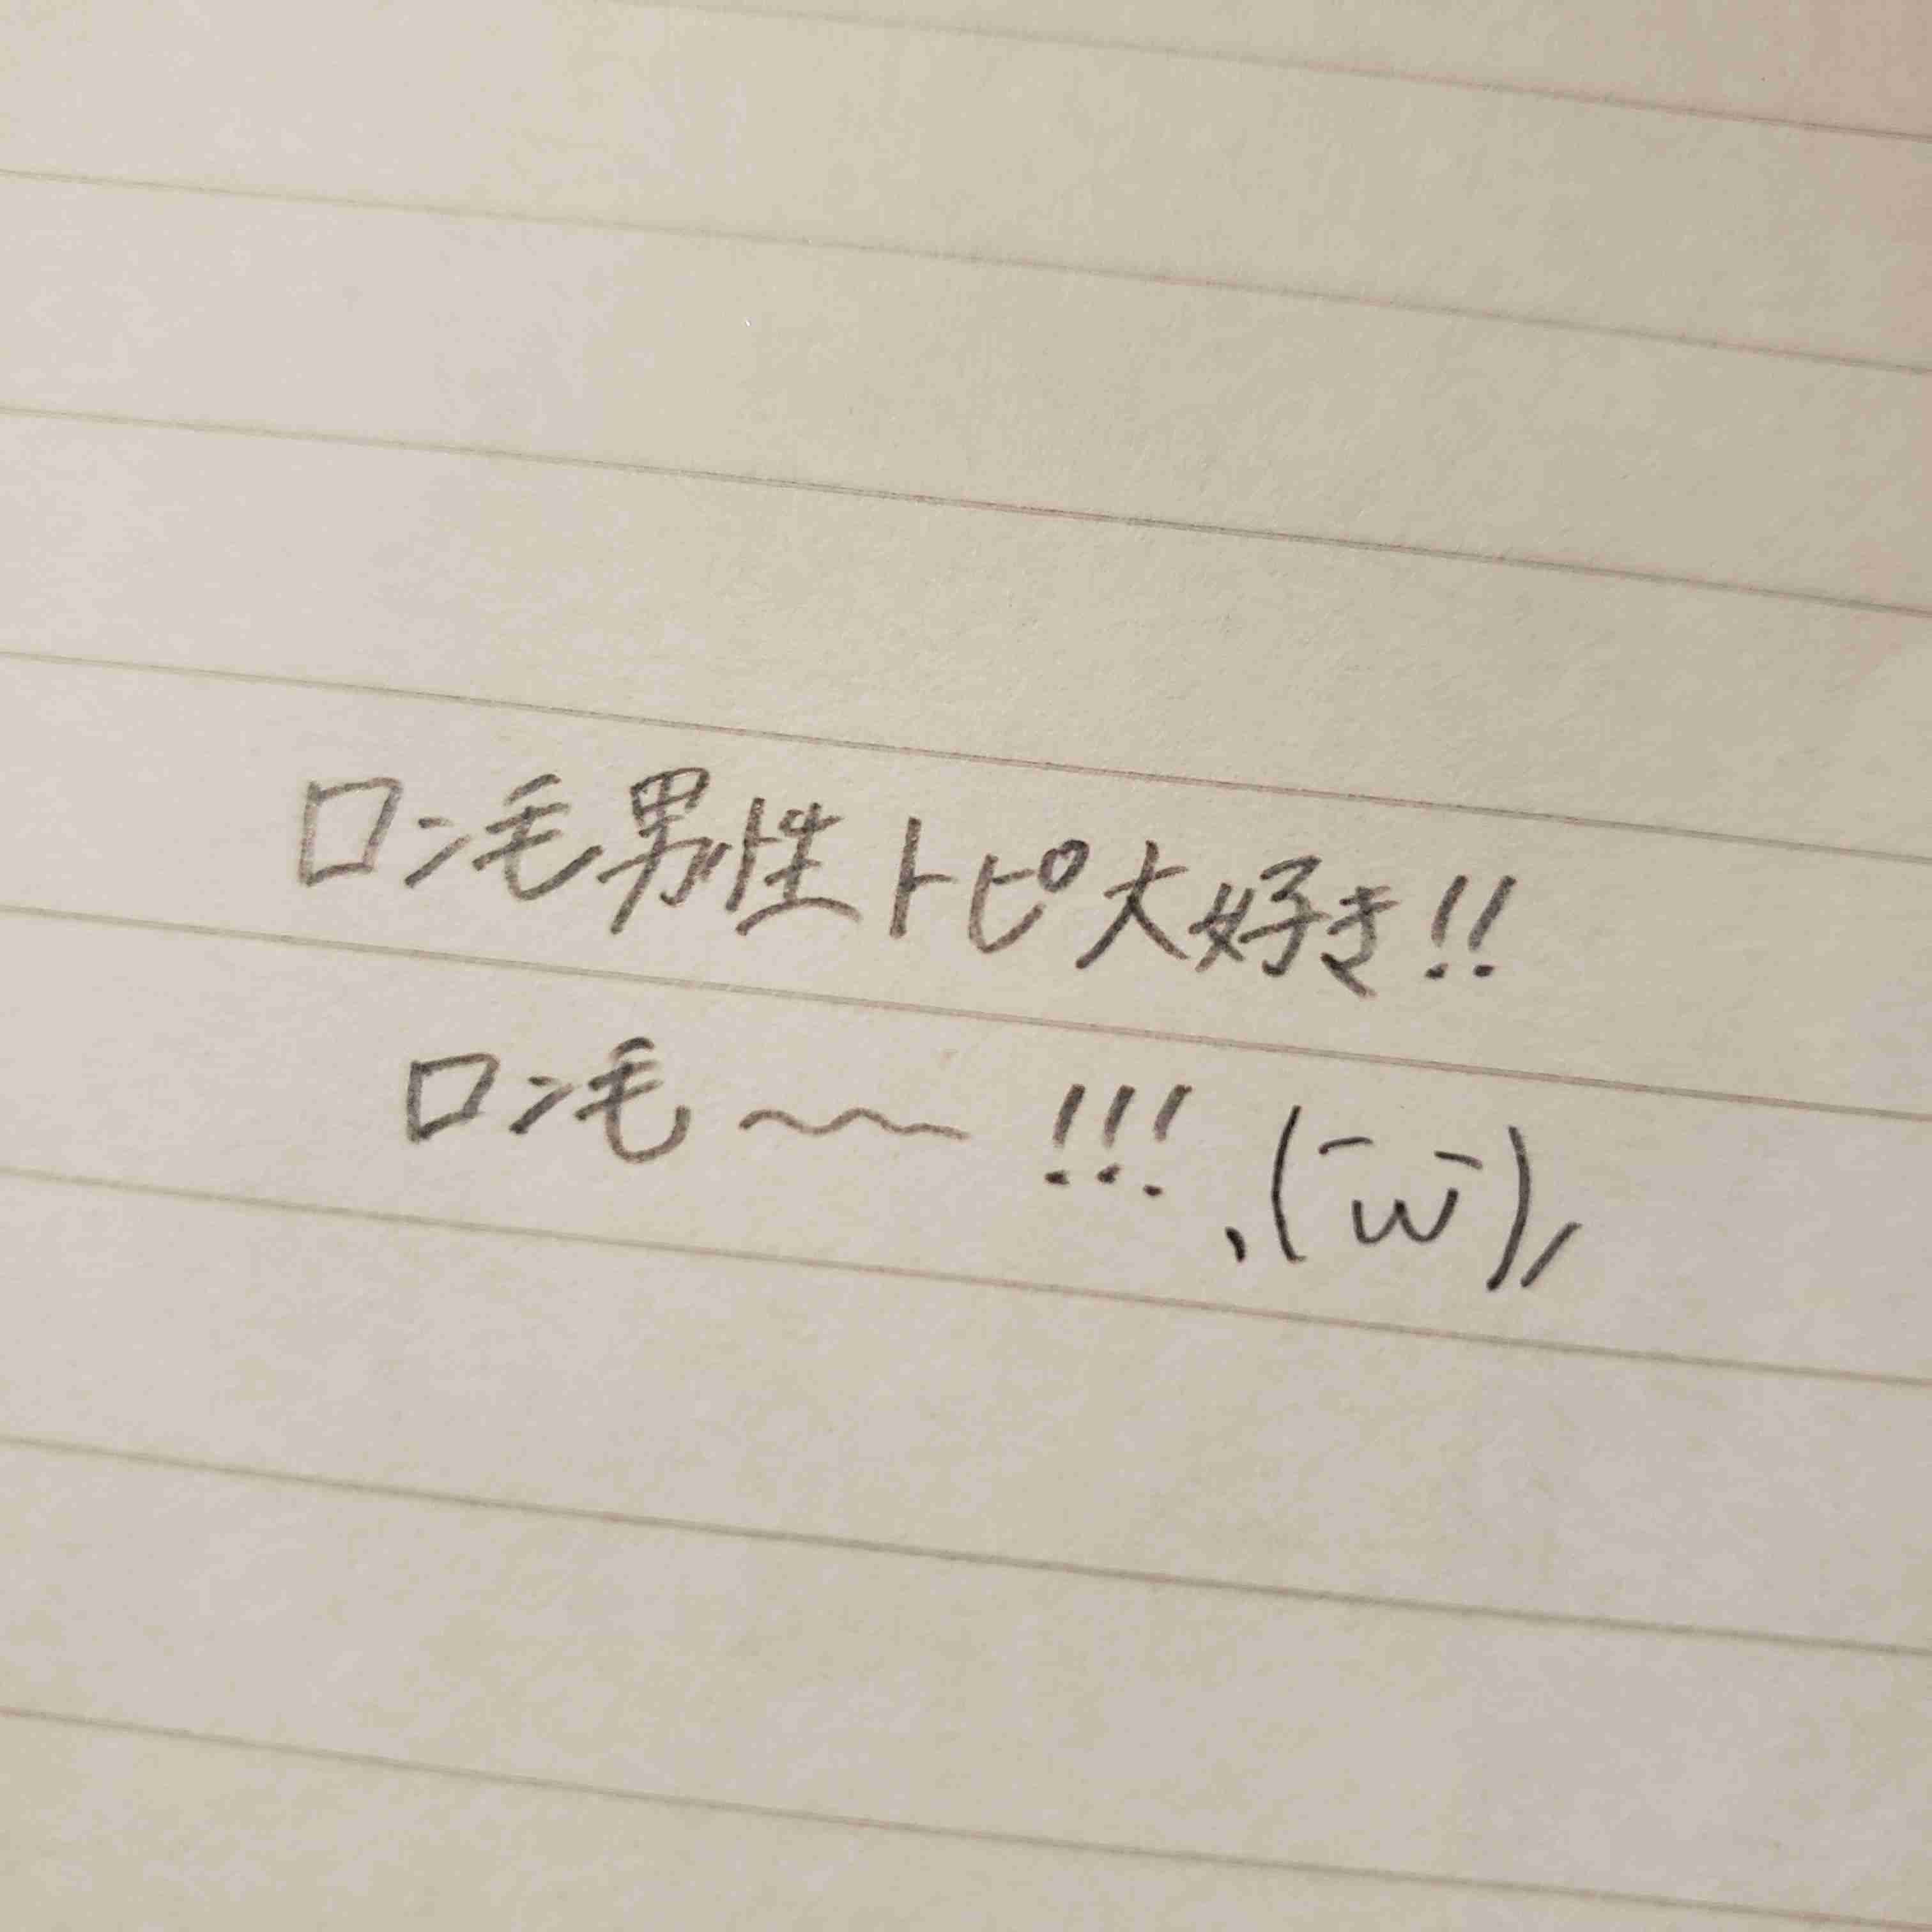 ロン毛男性トピ大好き!!
ロン毛〜〜!!! ､( ̄ω ̄)ﾉ